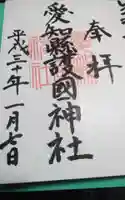 奉拝
愛知縣護國神社
平成三十年一月七日